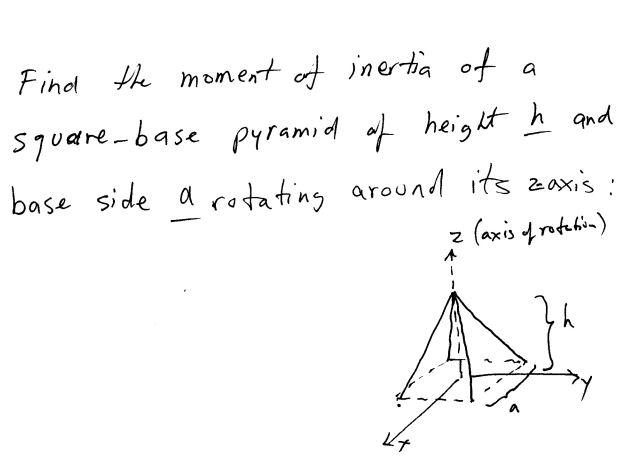 Find the moment of inertia of a
square-base pyramid of height h and
base side a rotating around its z-axis:
z (axis of rotation)
h
y
a
x